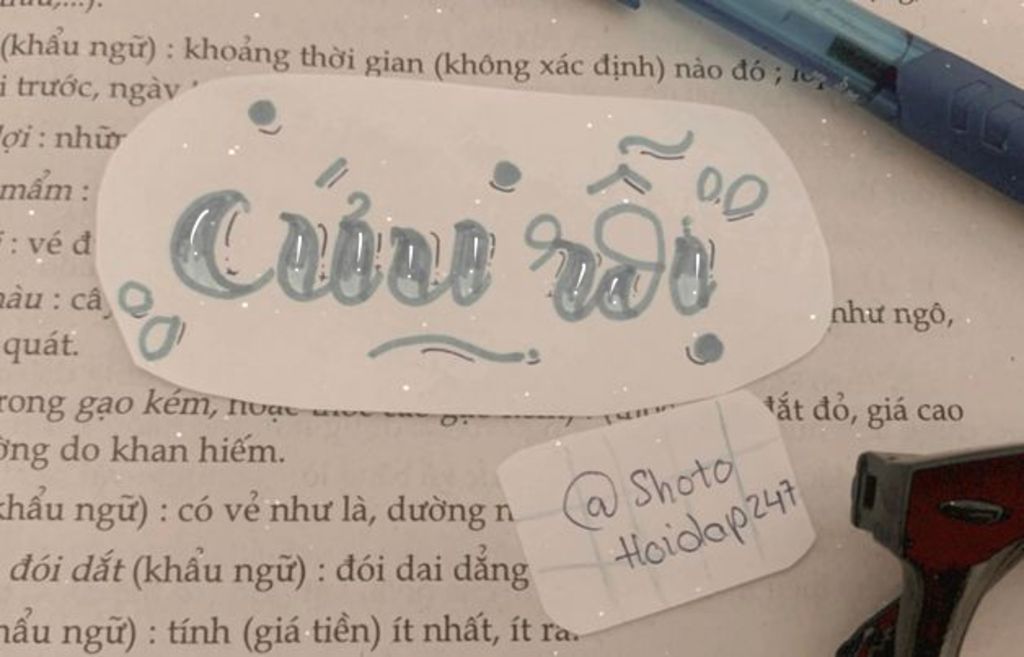 (khẩu ngữ) : khoảng thời gian (không xác định) nào đó ;
i trước, ngày
lợi : những
mẩm :
: vé đ
Cứu rỗi
àu : câ
như ngô,
quát.
rong gạo kém, hoặc
đắt đỏ, giá cao
ờng do khan hiếm.
khẩu ngữ) : có vẻ như là, dường n
@Shoto
Hoidap247
đói dắt (khẩu ngữ) : đói dai dẳng
hẩu ngữ) : tính (giá tiền) ít nhất, ít ra.